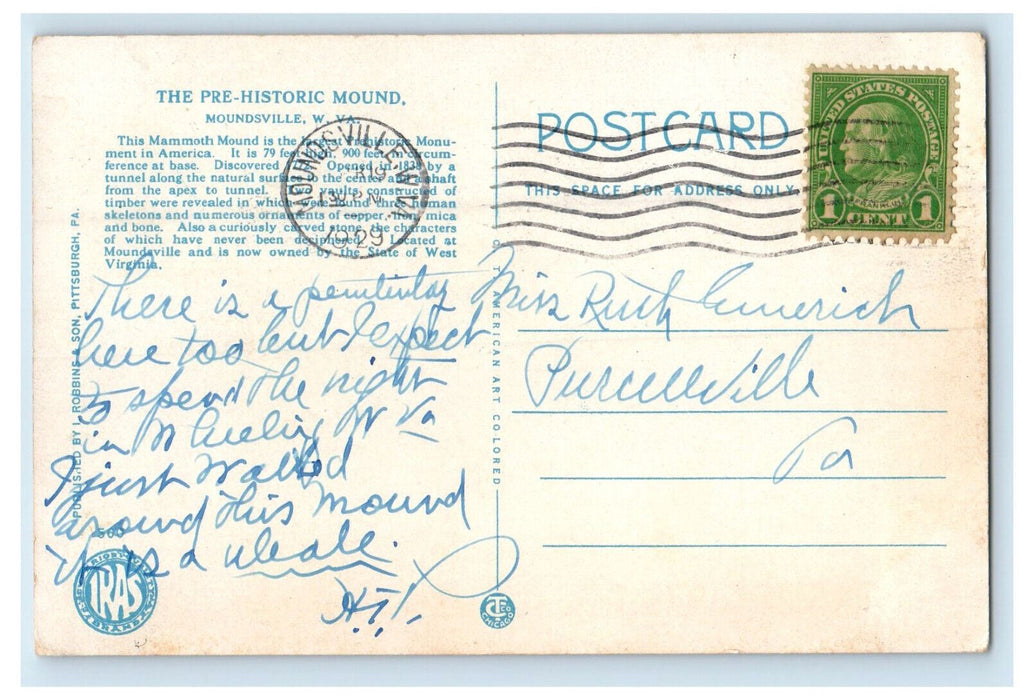 THE PRE-HISTORIC MOUND,
MOUNDSVILLE, W. VA.
This Mammoth Mound is the largest Prehistoric Monu-
ment in America. It is 79 feet high, 900 feet in circum-
ference at base. Discovered Opened in 1838 by a
tunnel along the natural surface to the center and a shaft
from the apex to tunnel. vaults constructed of
timber were revealed in which were found three human
skeletons and numerous ornaments of copper, mica
and bone. Also a curiously carved stone, the characters
of which have never been deciphered. Located at
Moundsville and is now owned by the State of West
Virginia.
There is a penitentiary
here too but I expect
to spend the night
in Wheeling W Va
I just walked
around this mound
it is a whale.
H.T.
PUBLISHED BY I. ROBBINS & SON, PITTSBURGH, PA.
TRAS
MOUNDSVILLE W.VA.
1929
AMERICAN ART COLORED
CT CO
CHICAGO
POST CARD
THIS SPACE FOR ADDRESS ONLY
UNITED STATES POSTAGE
FRANKLIN
1 CENT 1
Miss Ruth Emerich
Purcellville
Va